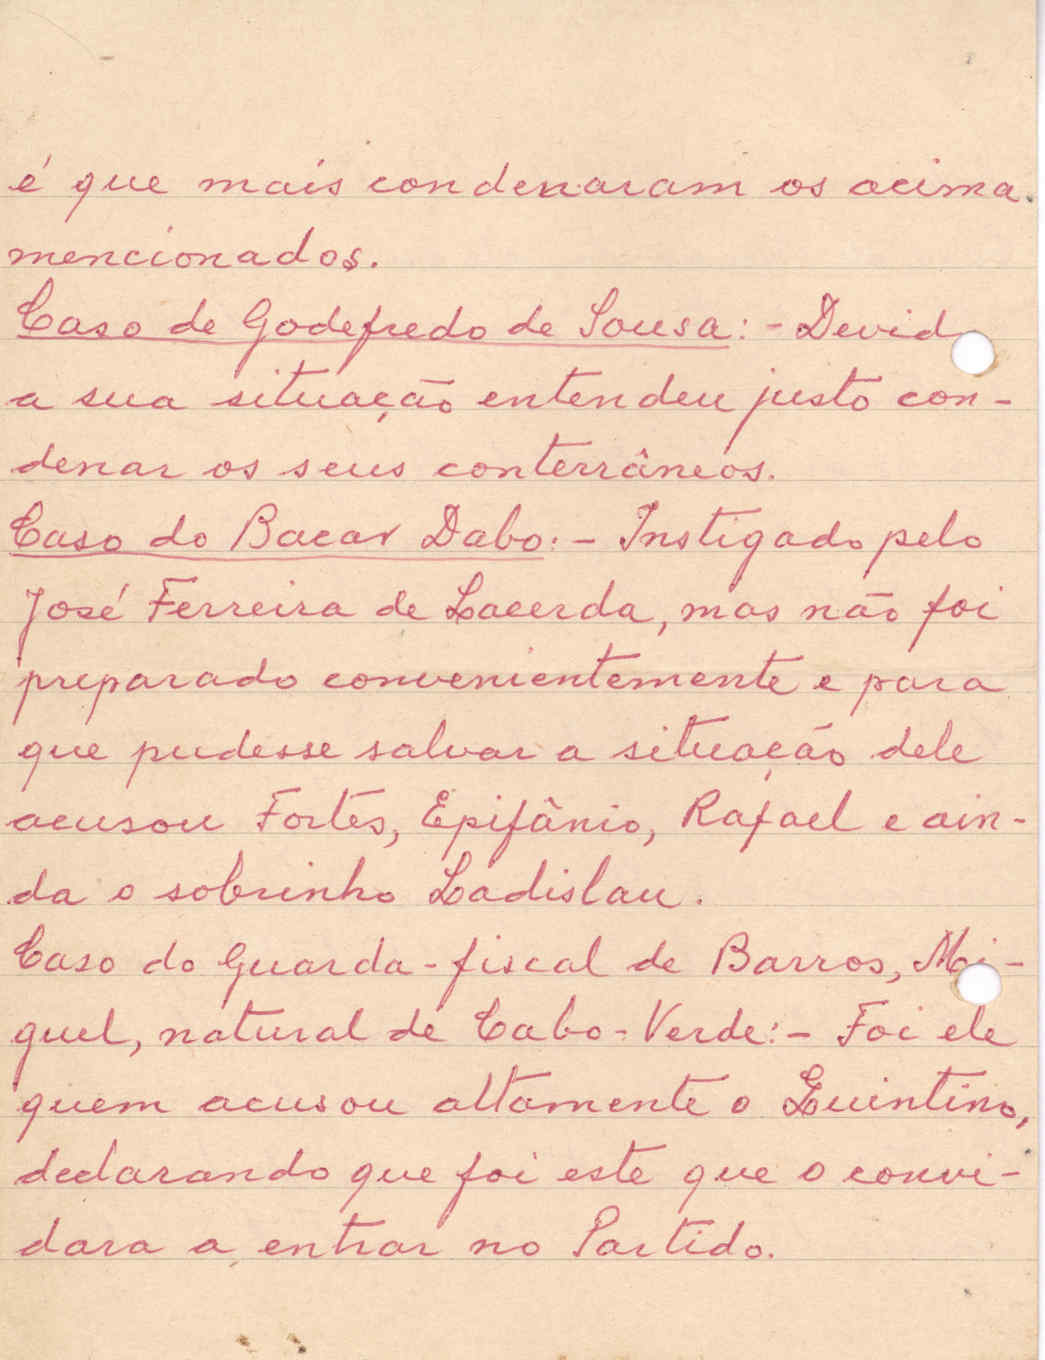 é que mais condenaram os acima
mencionados.
Caso de Godefredo de Sousa: - Devid
a sua situação entendeu justo con-
denar os seus conterrâneos.
Caso do Bacar Dabo: - Instigado pelo
José Ferreira de Lacerda, mas não foi
preparado convenientemente e para
que pudesse salvar a situação dele
acusou Fortes, Epifânio, Rafael e ain-
da o sobrinho Ladislau.
Caso do Guarda-fiscal de Barros, Mi-
guel, natural de Cabo-Verde: - Foi ele
quem acusou altamente o Quintino,
declarando que foi este que o convi-
dara a entrar no Partido.